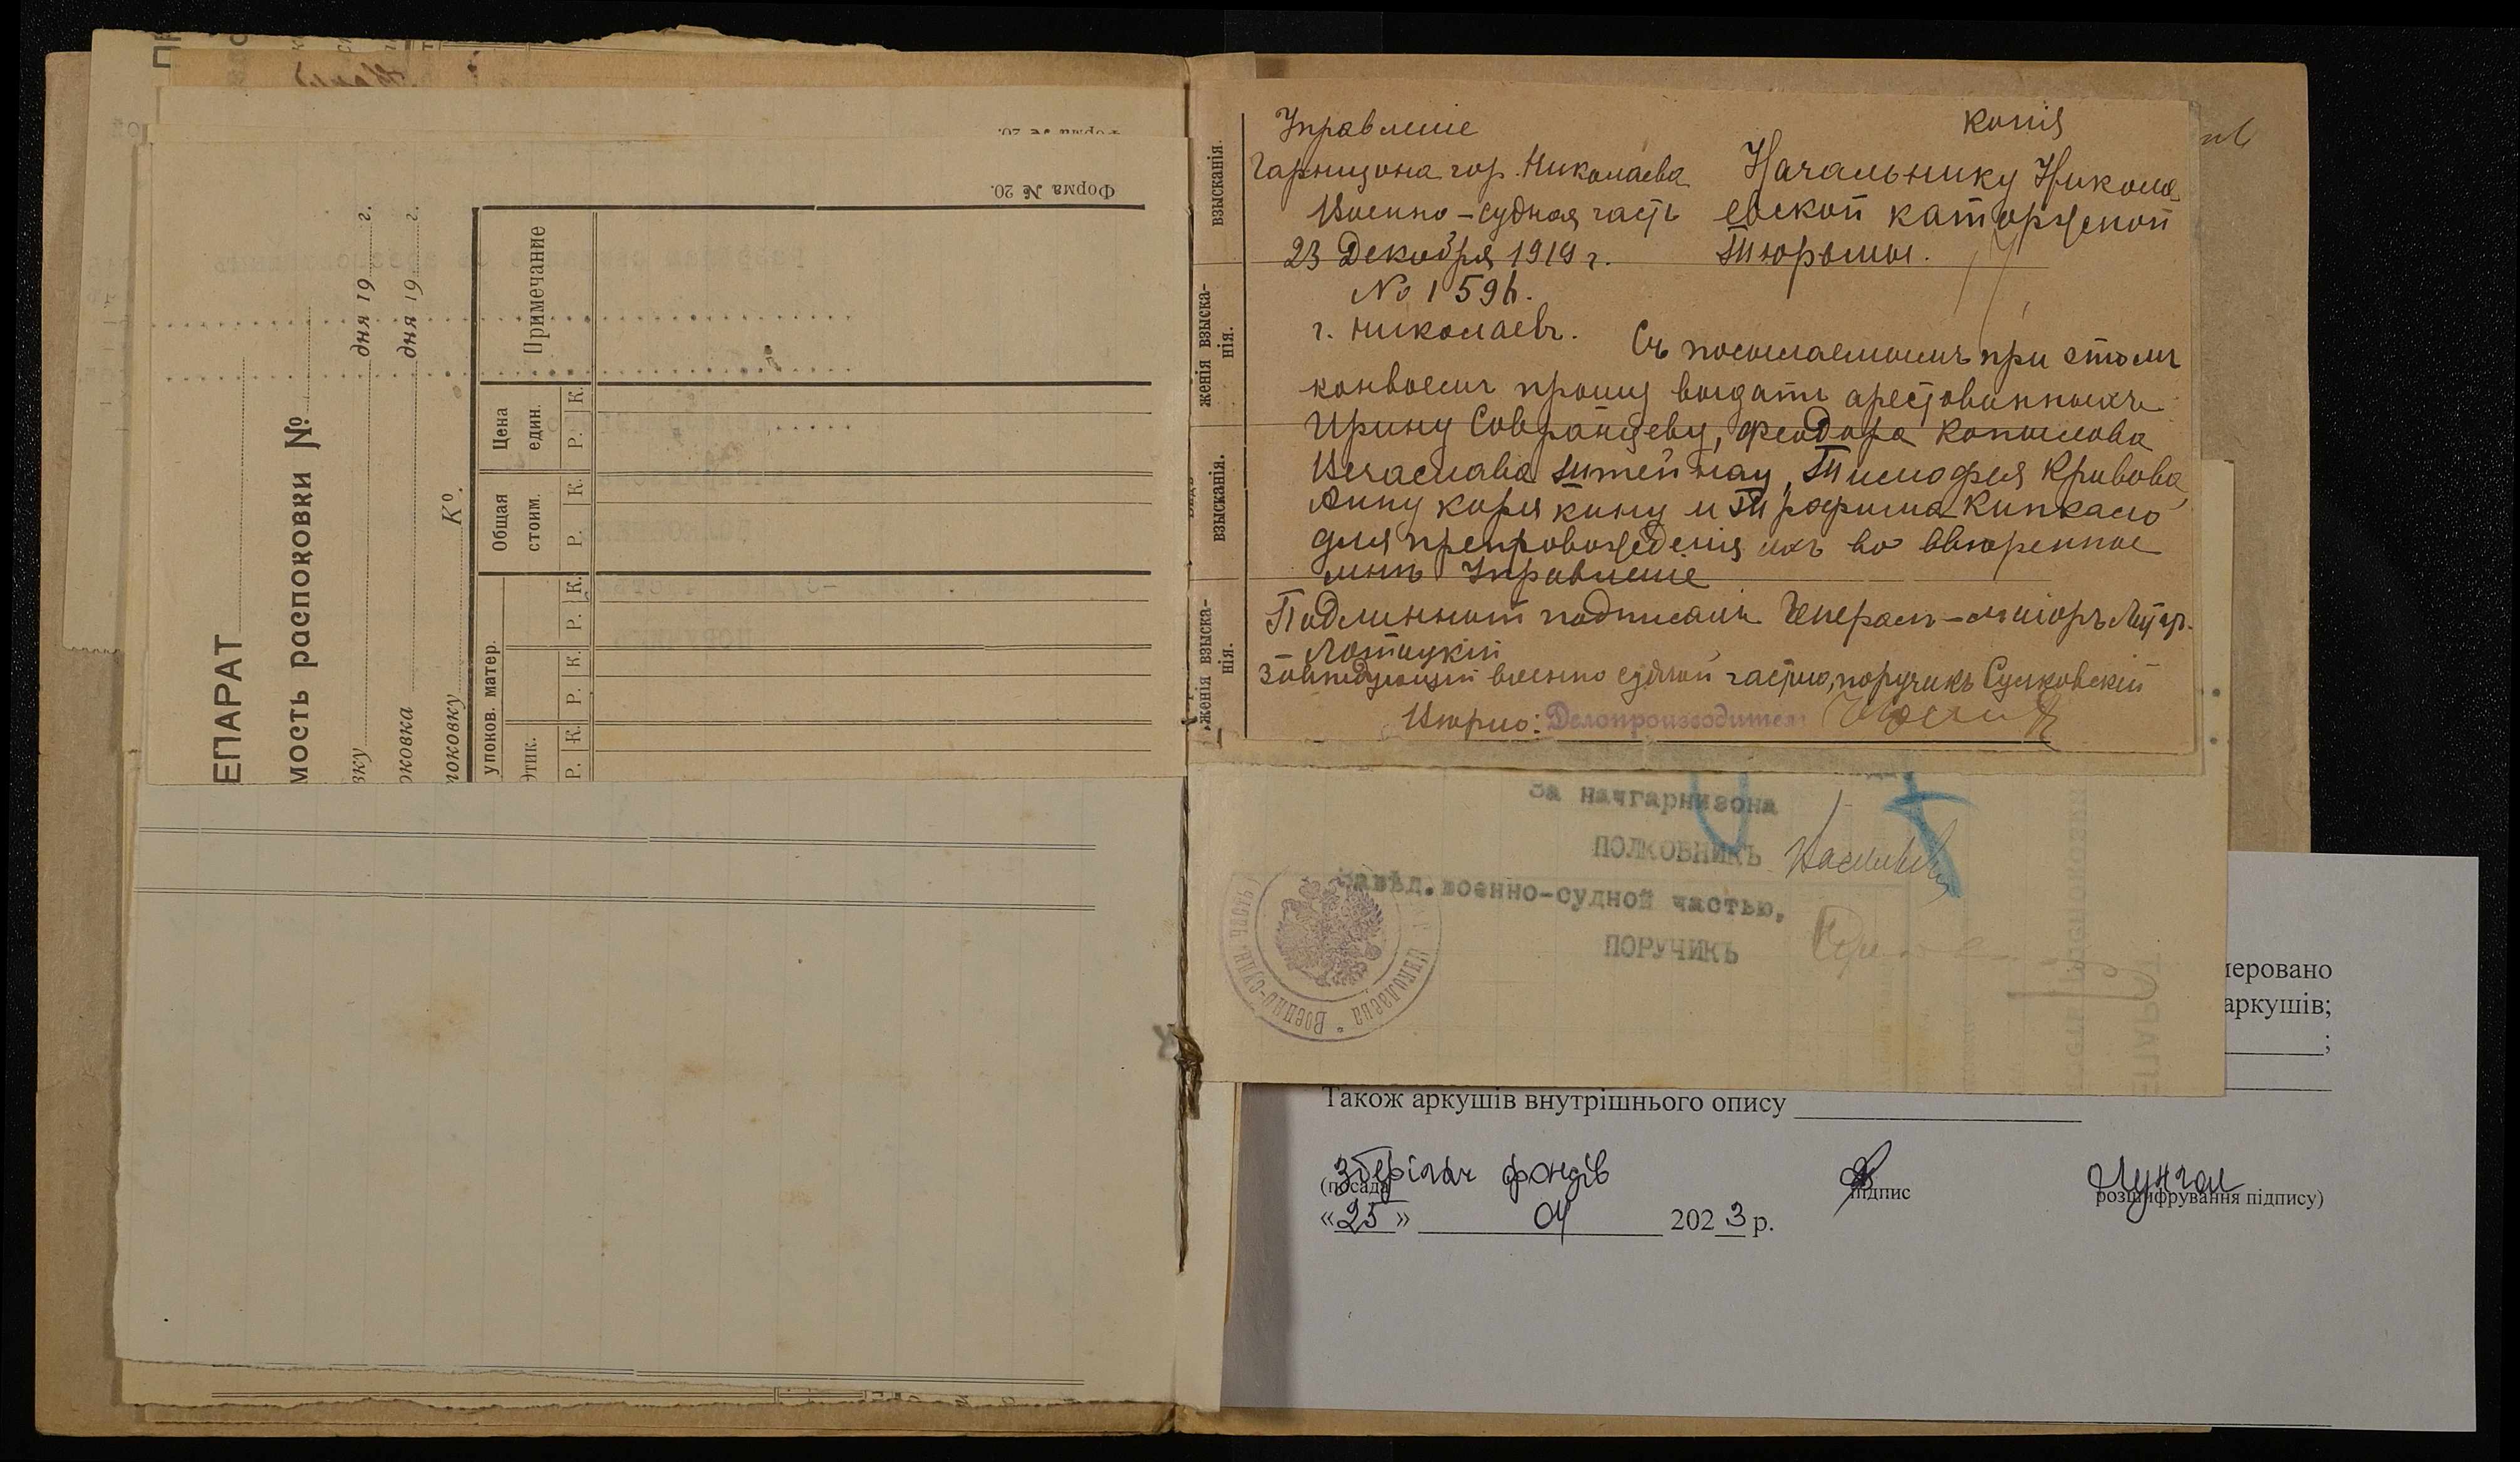 Форма № 20.
Форма № 20.
ЕПАРАТ
мость распоковки №
вку дня 19 г.
оковка дня 19 г.
поковку К⁰.
упоков. матер.
Этик.
Общая стоим.
Цена един.
Примечание
Р. К. Р. К. Р. К. Р. К. Р. К.
взысканія.
женія взыска-
нія.
взысканія.
женія взыска-
нія.
Управленіе
Гарнизона гор. Николаева
Военно-судная часть
23 Декабря 1919 г.
№ 1596.
г. Николаевъ.
Копія
Начальнику Никола
евской каторжной
Тюрьмы.
Съ посылаемымъ при этомъ
конвоемъ прошу выдать арестованныхъ
Ирину Совранцеву, Феодора Копылова
Вячеслава Штейнау, Тимофея Кривова,
Анну Корякину и Трофима Кипкало
для препровожденія ихъ во ввѣренное
мнѣ Управленіе
Подлинный подписали Генерал-маіоръ
Лотоцкій
Завѣдующій военно судной частью, поручикъ Сулковскій
Вѣрно: Делопроизводитель
За начгарнизона
ПОЛКОВНИКЪ
Завѣд. военно-судной частью,
ПОРУЧИКЪ
Николаева * Военно-судн. часть
меровано
аркушів;
;
Також аркушів внутрішнього опису
Зберігач фондів
(посада) підпис розшифрування підпису)
«25» 04 2023 р.